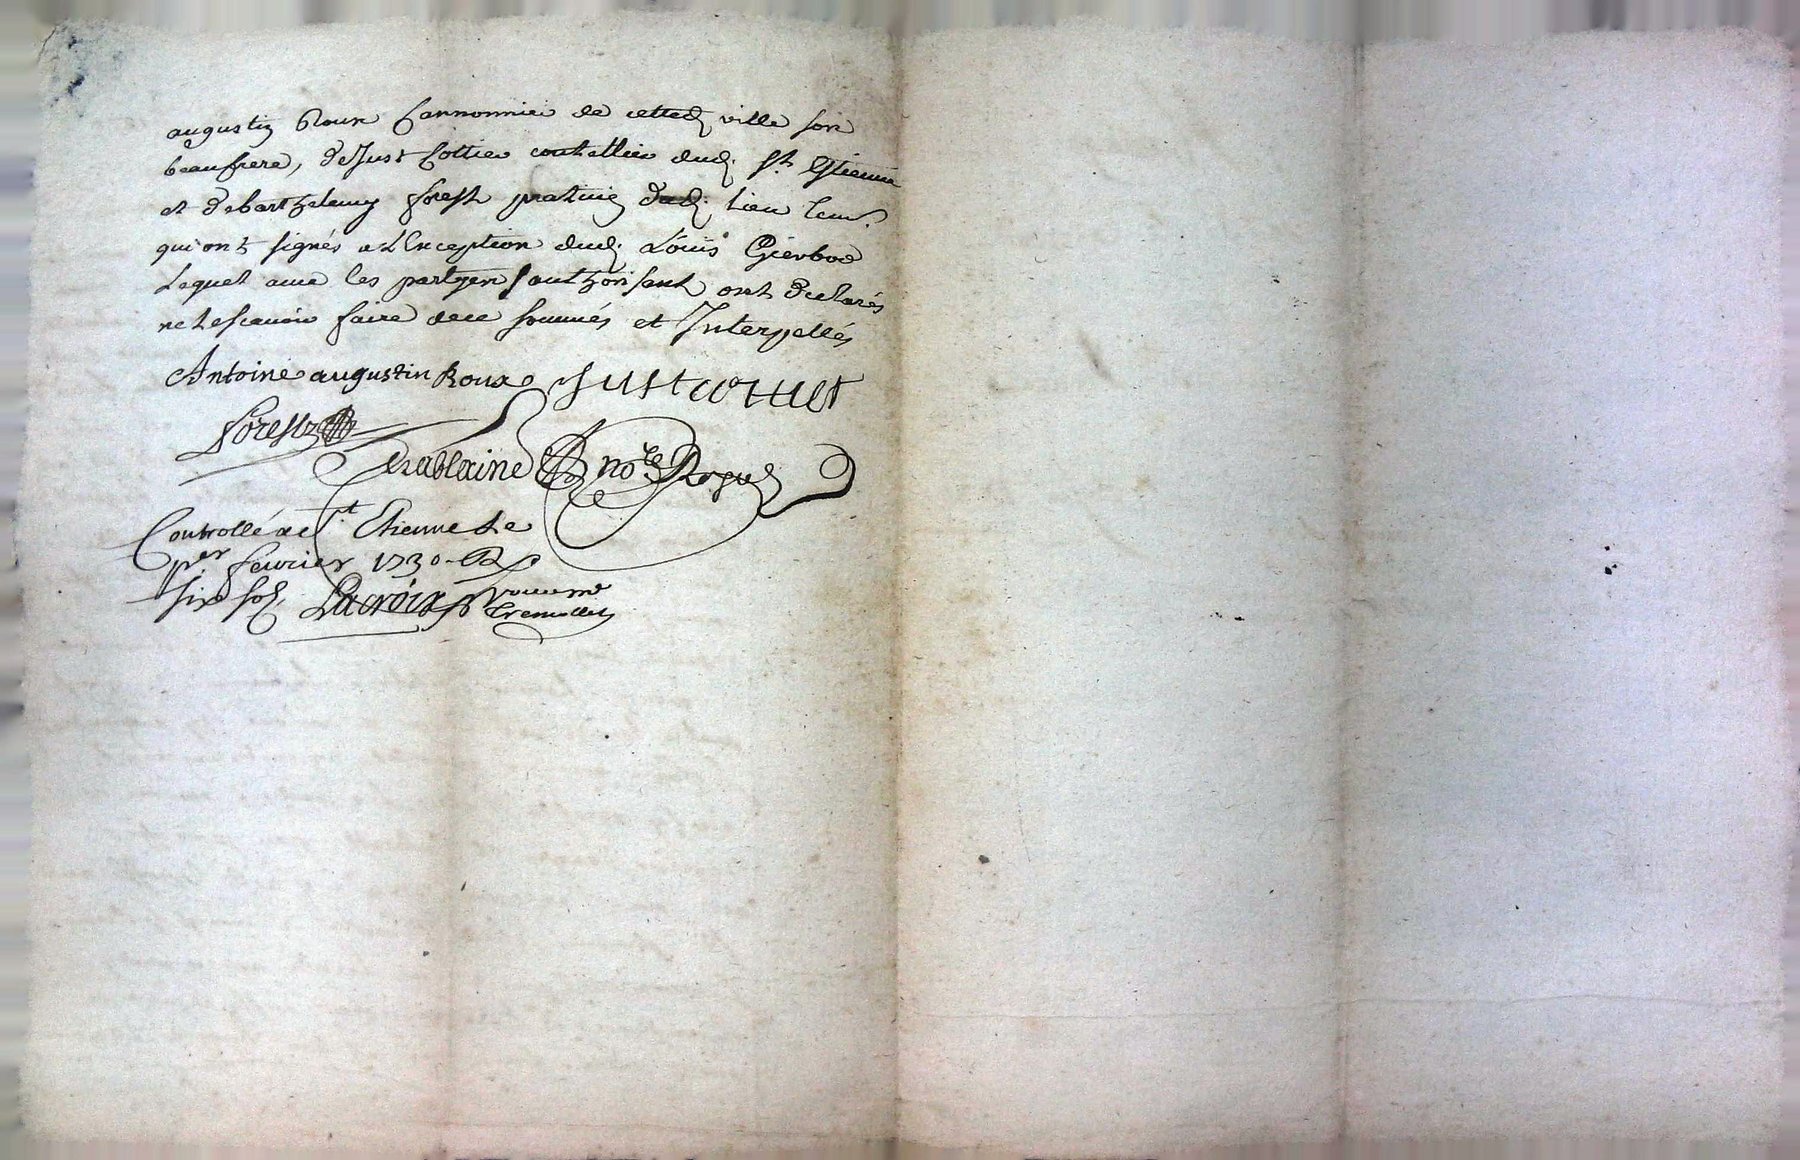 augustin Roux Cannonnier de cetted. ville son
beaufrere, de Just Cottier coutellier dud. St. Estienne
et de barthelemy forest praticien dud. lieu
qui ont signés a L'Exception dud. Louis
Lequel avec les partyes s'authorisant ont declarés
ne le scavoir faire de ce sommés et Interpellés
Antoine augustin Roux Just cottiet
forest
chablaine nore Royal
Controllé a St. Etienne le
per fevrier 1730 R
six sols Lacroix pour mr
tremollet